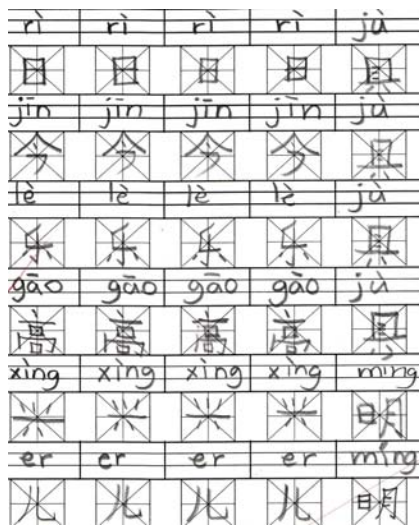 rì rì rì rì jù
日 日 日 日 具
jīn jīn jīn jīn jù
今 今 今 今 具
lè lè lè lè jù
乐 乐 乐 乐 具
gāo gāo gāo gāo jù
高 高 高 高 具
xìng xìng xìng xìng míng
兴 兴 兴 兴 明
er er er er míng
儿 儿 儿 儿 明